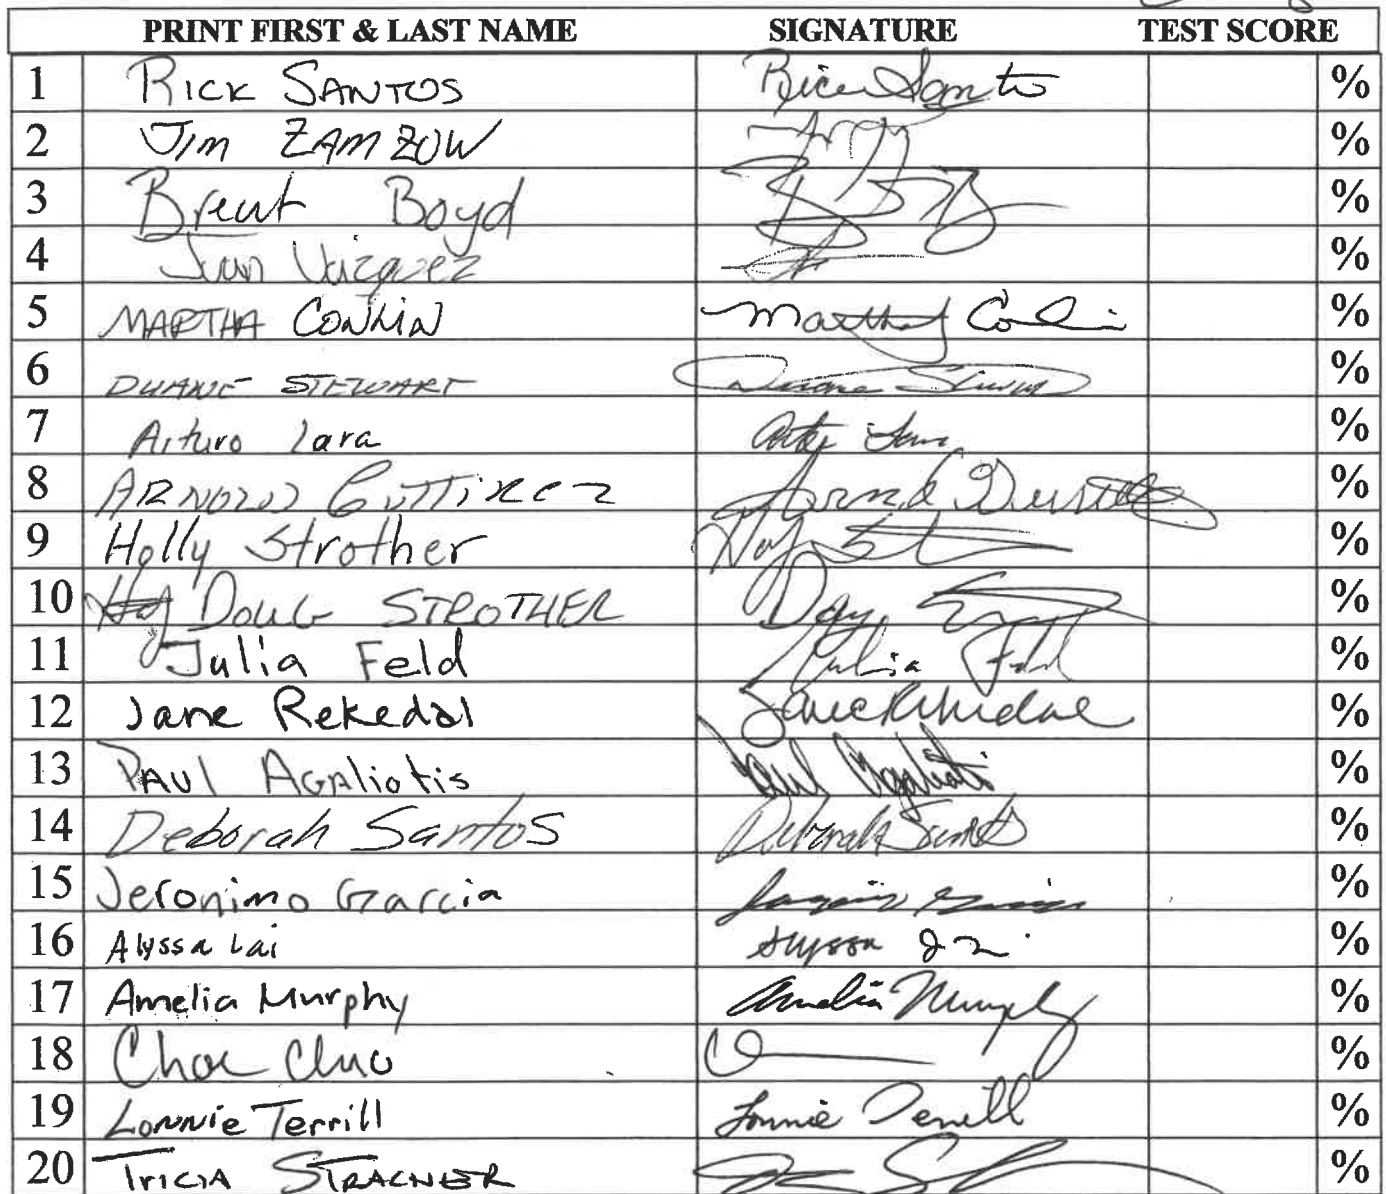 PRINT FIRST & LAST NAME SIGNATURE TEST SCORE
1 RICK SANTOS Rick Santo %
2 JIM ZAMZOW %
3 Brent Boyd %
4 Juan Vazquez %
5 MARTHA CONLIN Martha Conlin %
6 DUANE STEWART Duane Stewart %
7 Arturo Lara %
8 ARNOLD GUTTIREZ Arnold %
9 Holly Strother %
10 DOUG STROTHER Doug %
11 Julia Feld Julia Feld %
12 Jane Rekedal Jane Rekedal %
13 PAUL AGALiotis Paul Agaliotis %
14 Deborah Santos Deborah Santos %
15 Jeronimo Garcia %
16 Alyssa Lai Alyssa %
17 Amelia Murphy Amelia Murphy %
18 %
19 Lonnie Terrill Lonnie Terrill %
20 TRICIA STRACNER %